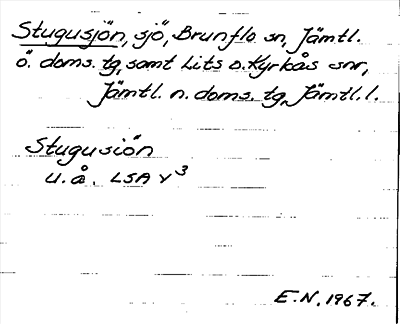 Stugusjön, sjö, Brunflo sn, Jämtl.
ö. doms. tg, samt Lits o. Kyrkås snr,
Jämtl. n. doms. tg, Jämtl. l.
Stugusiön
u.å. LSA v³
E.N. 1967.